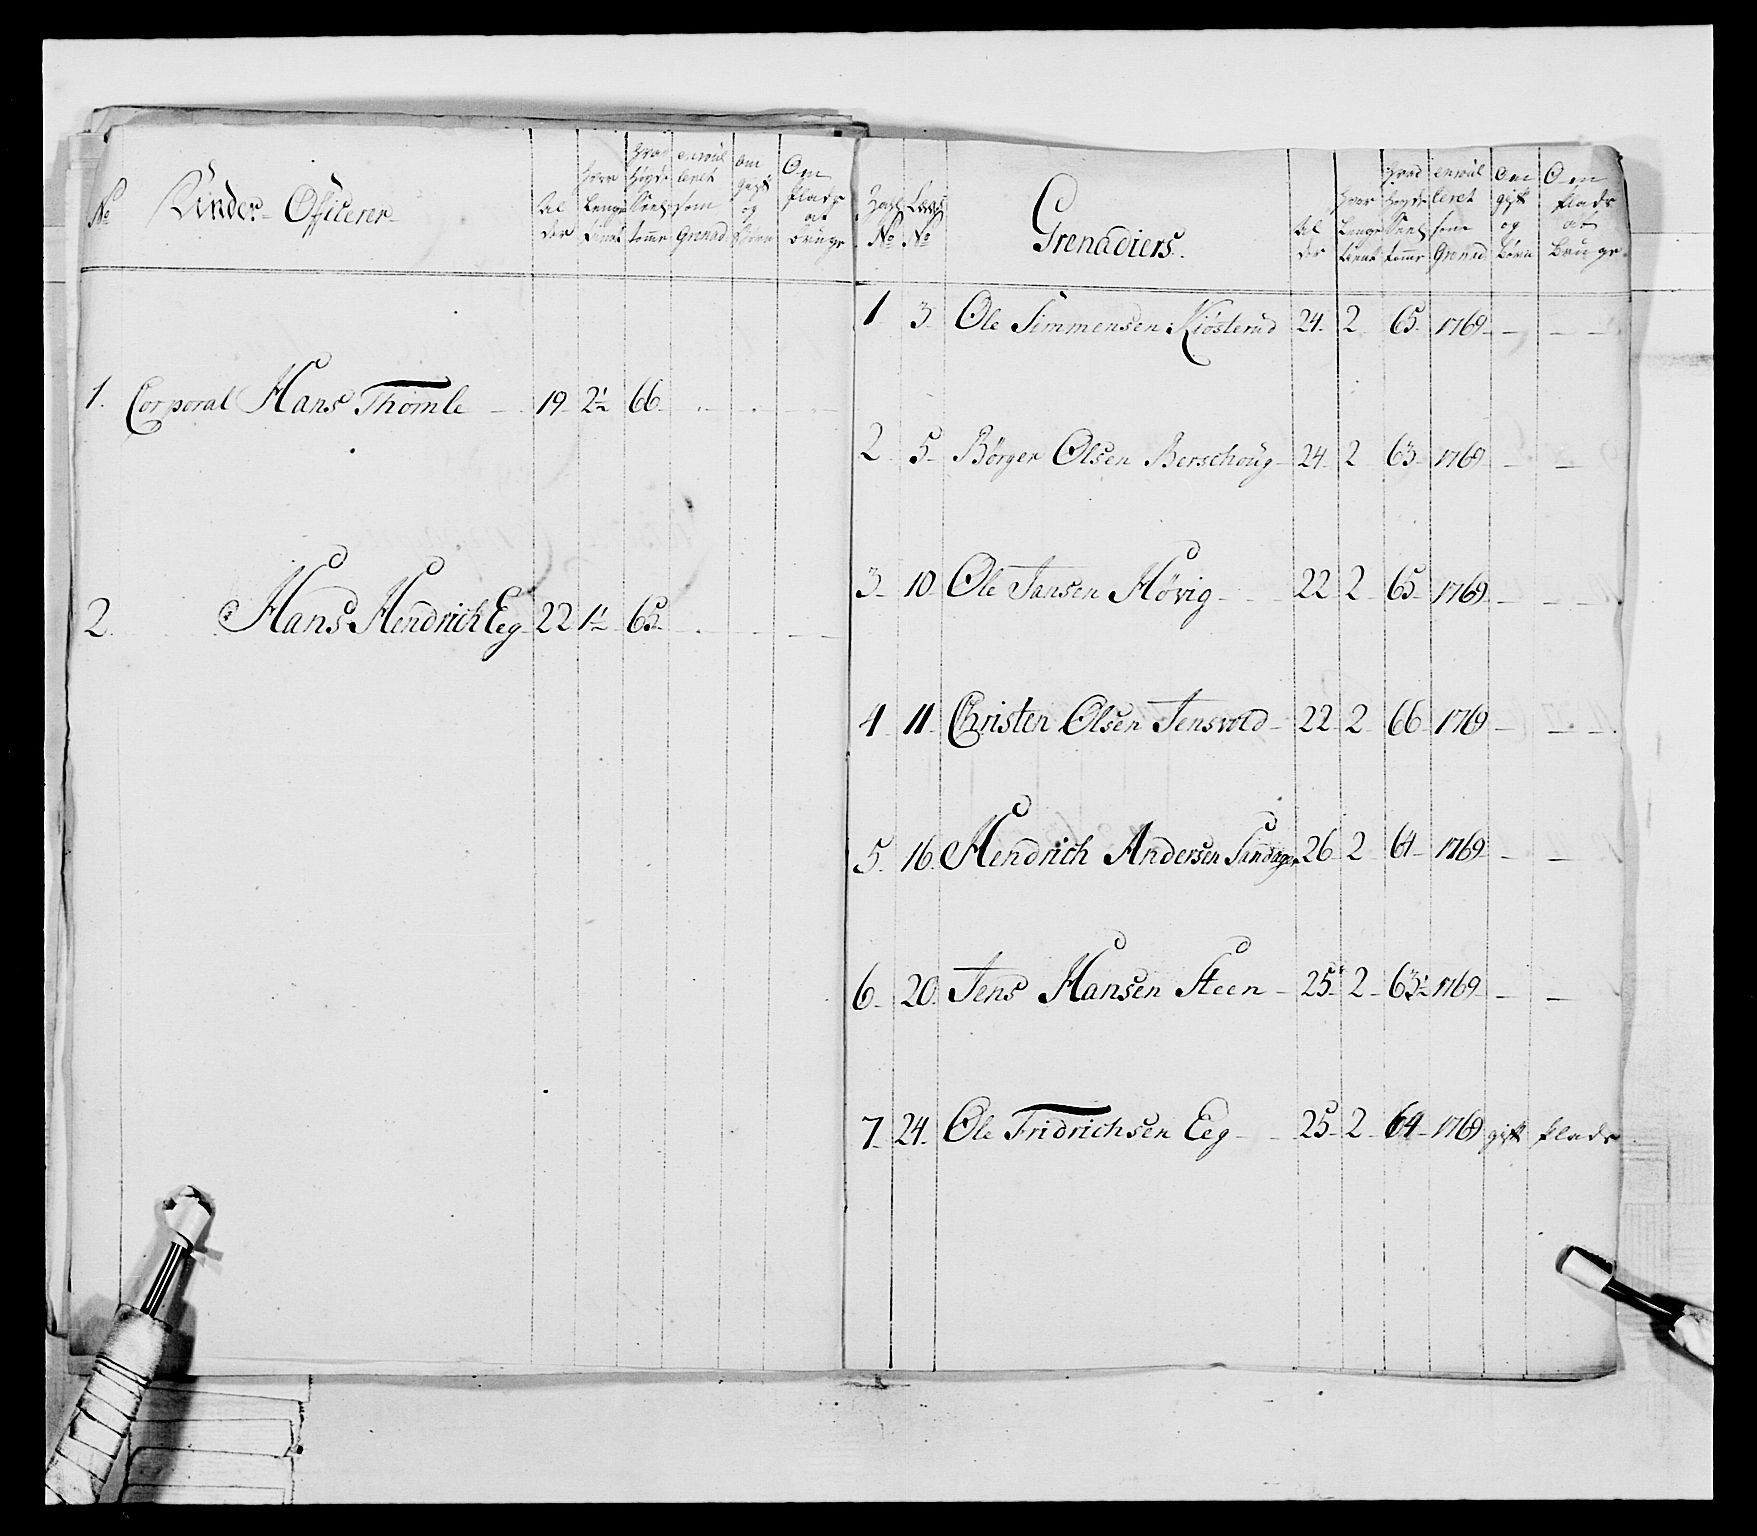 No
Under-Oficerer
Al der
Hvor Lenge tient
Hvad Høyde tomr
enroul leret som Grenad
Om gift og Børn
Om Plads at bruge
1. Corporal Hans Thomle 19 2½ 66
2. Hans Hendrich Eeg 22 1½ 65
No No
Grenadiers.
Al der
Hvor Lenge tient
Hvad Høyde tomr
enroul leret som Grenad
Om gift og Børn
Om Plads at Bruge
1 3 Ole Simmensen Kiøsterud 24 2 65 1769
2 5 Børger Olsen Berschoug 24 2 63 1769
3 10 Ole Jansen Høvig 22 2 65 1769
4 11 Christen Olsen Jensvold 22 2 66 1769
5 16 Hendrich Andersen Sandager 26 2 64 1769
6 20 Jens Hansen Steen 25 2 63½ 1769
7 24 Ole Fridrichsen Eeg 25 2 64 1769 gift Plads